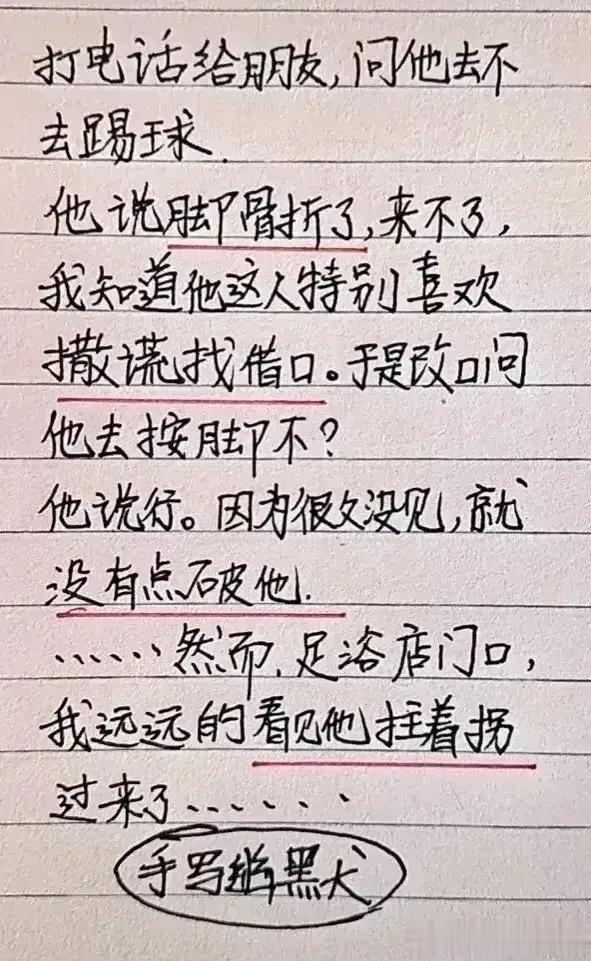 打电话给朋友,问他去不
去踢球.
他说脚骨折了,来不了,
我知道他这人特别喜欢
撒谎找借口。于是改口问
他去按脚不?
他说行。因为很久没见,就
没有点破他.
······然而,足浴店门口,
我远远的看见他拄着拐
过来了······
手写